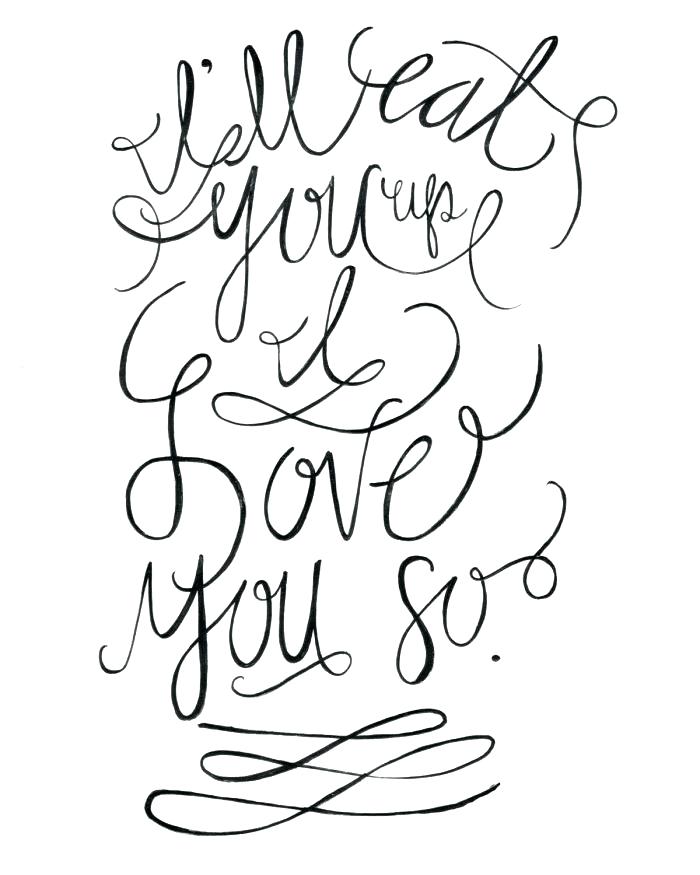 I'll eat
you up
I
Love
you so.